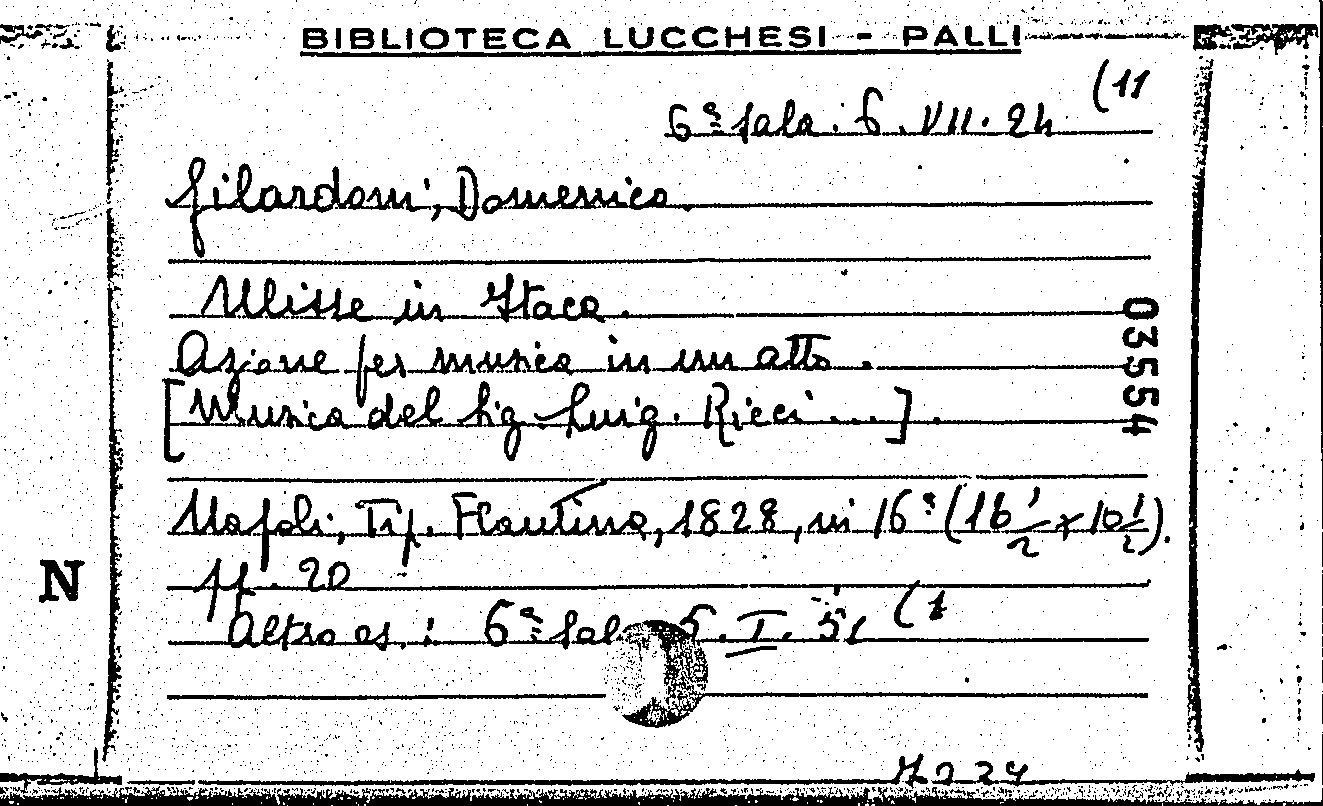 BIBLIOTECA LUCCHESI - PALLI
(11
6ª Sala. 6. VII. 24
Gilardoni, Domenico.
Ulisse in Itaca.
Azione per musica in un atto.
[Musica del Sig. Luig. Ricci ...].
03554
Napoli, Tip. Flautina, 1828, in 16° (16 1/2 x 10 1/2).
N
pp. 20
Altro es.: 6ª Sala 5. I. (1